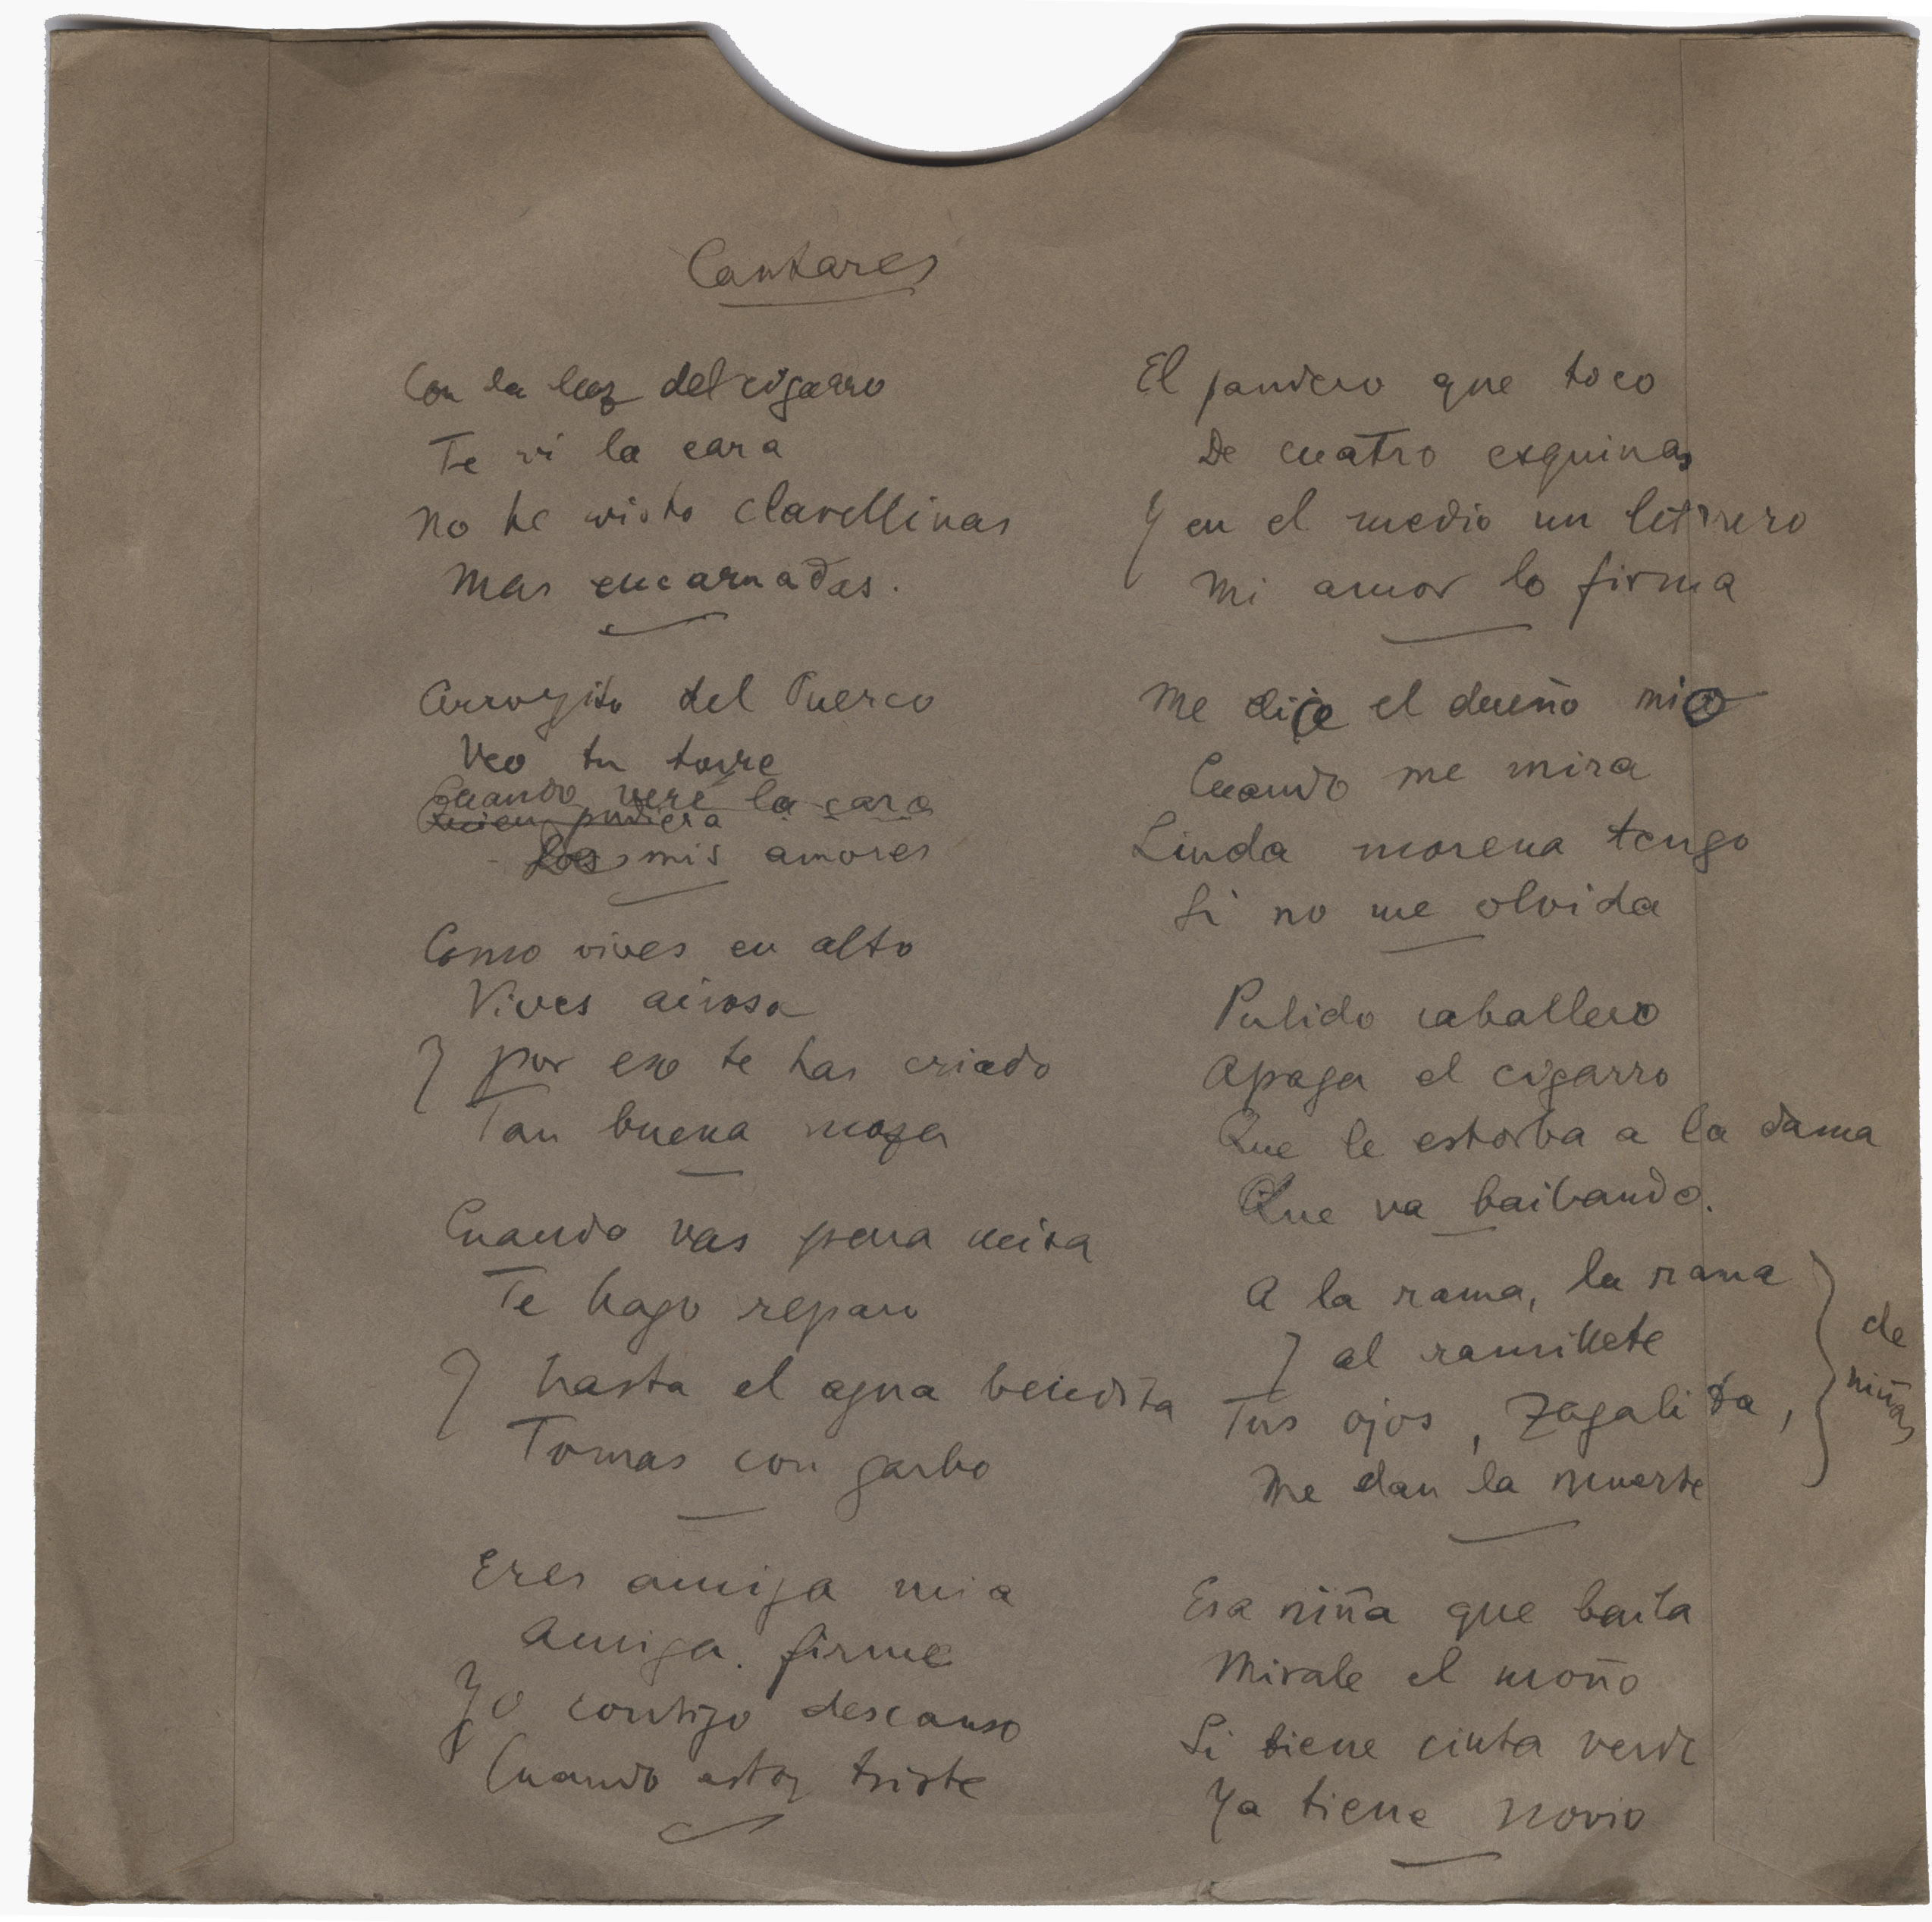 Cantares
Con la luz del cigarro
Te vi la cara
no he visto clavellinas
Mas encarnadas.
Arroyito del Puerco
Veo tu torre
Cuando veré la cara
Quien pudiera
mis amores
Como vives en alto
Vives airosa
Y por eso te has criado
Tan buena moza
Cuando vas pena misa
Te hago reparo
Y hasta el agua bendita
Tomas con garbo
Eres amiga mia
Amiga firme
Yo contigo descanso
Cuando estoy triste
El pandero que toco
De cuatro esquinas
Y en el medio un letrero
Mi amor lo firma
Me dice el dueño mio
Cuando me mira
Linda morena tengo
Si no me olvida
Pulido caballero
Apaga el cigarro
Que le estorba a la dama
Que va bailando.
A la rama, la rama
Y al ramillete
Tus ojos, Zagalita,
Me dan la muerte
de
niñas
Esa niña que baila
Mirale el moño
Si tiene cinta verde
Ya tiene novio